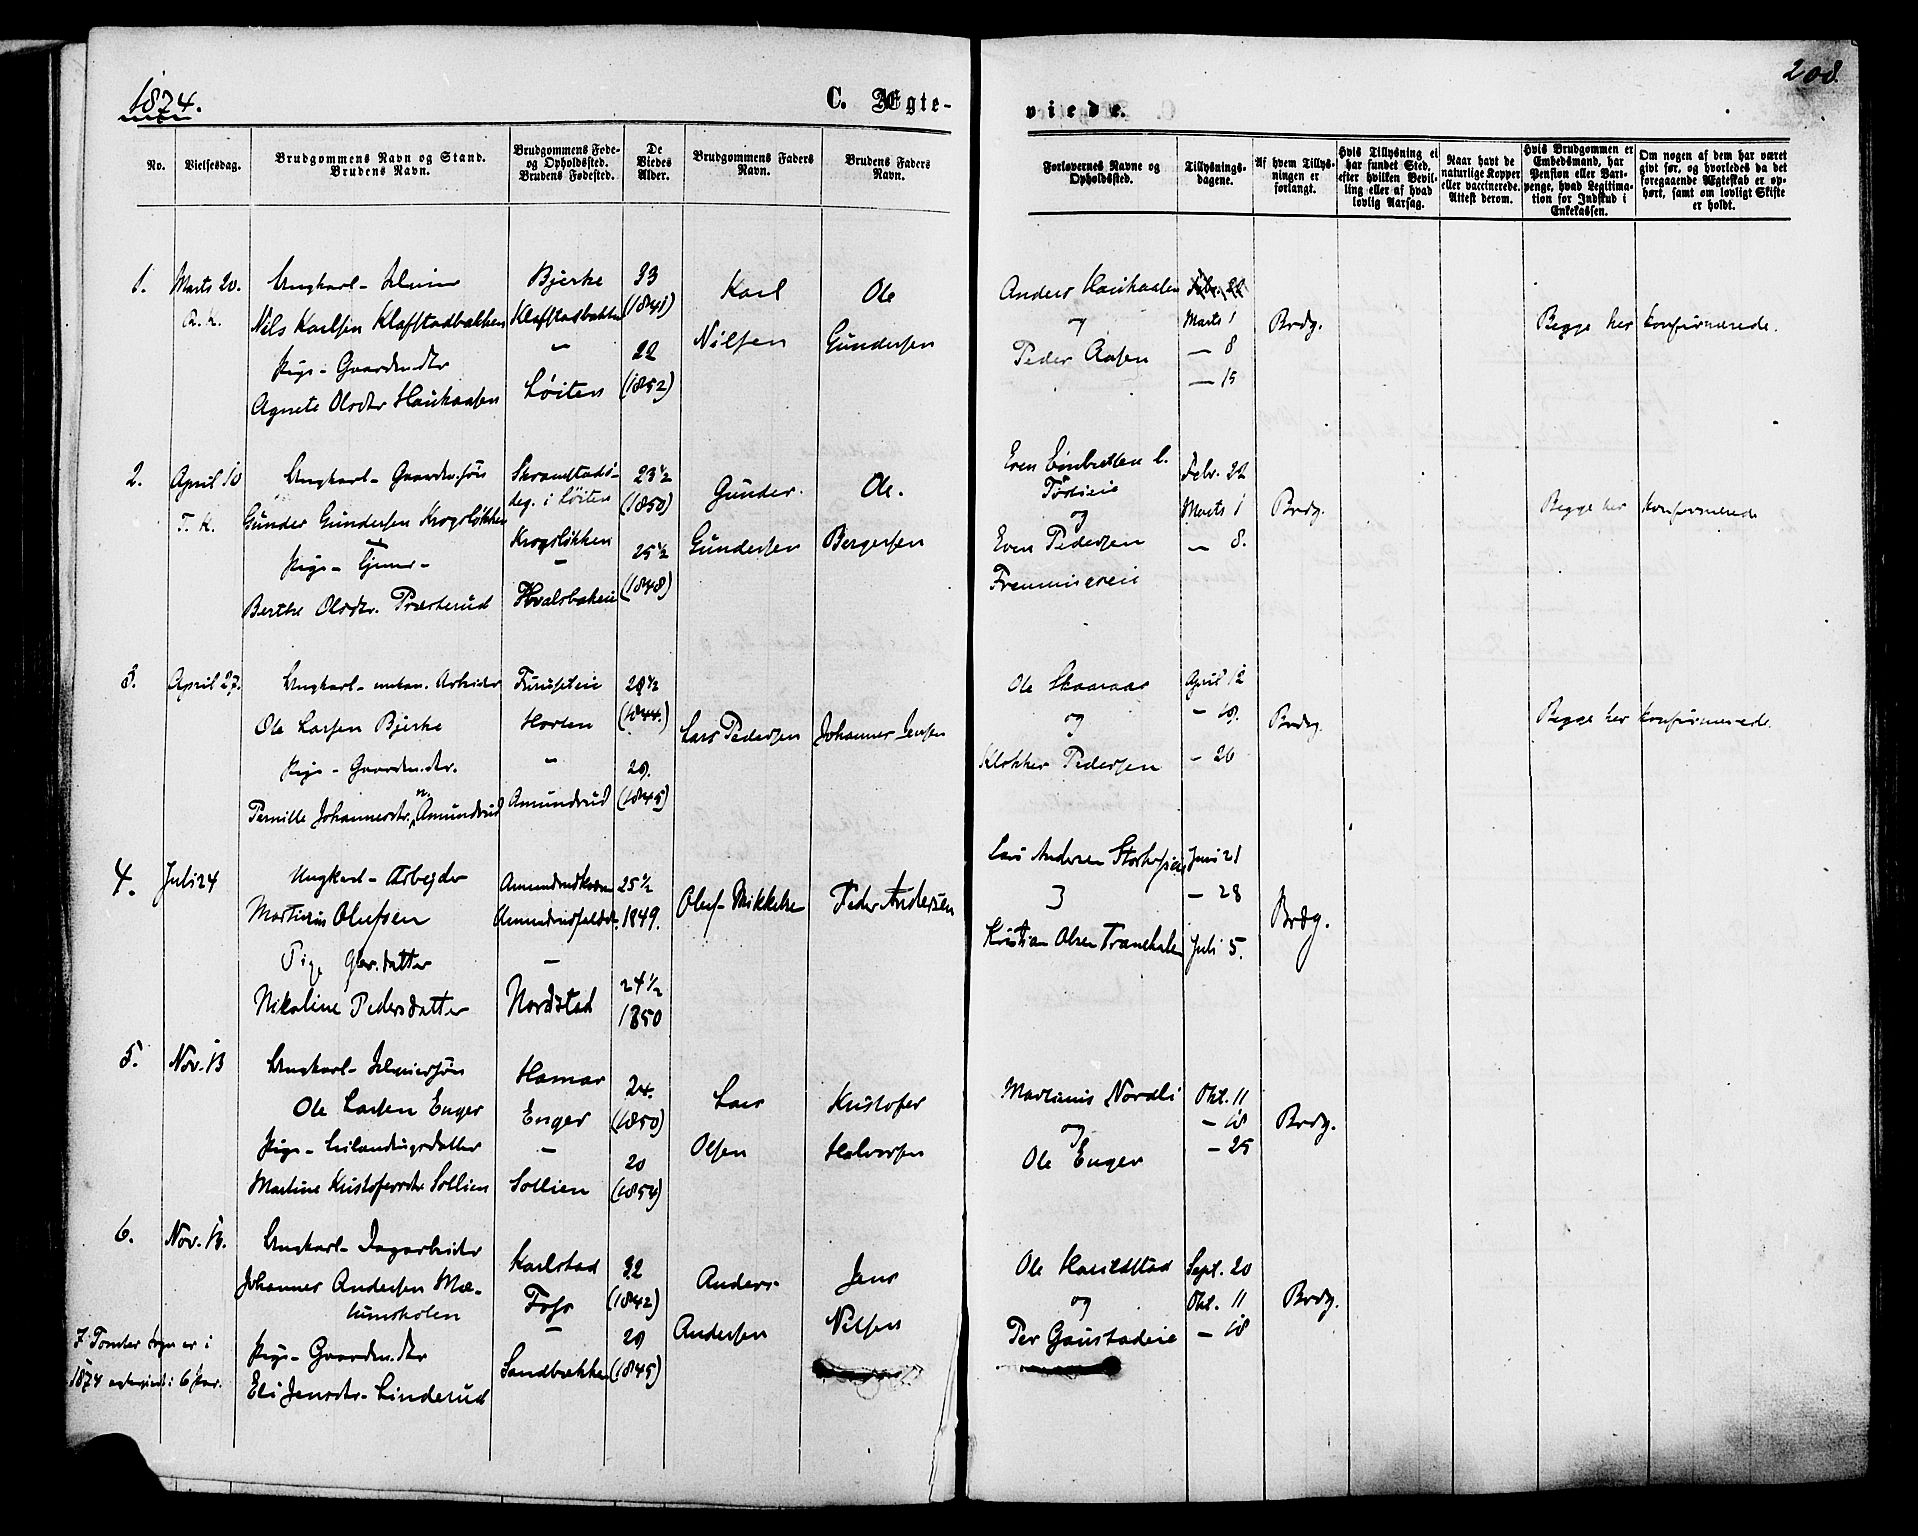 1874.
C. Ægte-
viede.
208.
No.
Vielsesdag.
Brudgommens Navn og Stand.
Brudens Navn.
Brudgommens Føde-
og Opholdssted.
Brudens Fødested.
De
Viedes
Alder.
Brudgommens Faders
Navn.
Brudens Faders
Navn.
Forlovernes Navne og
Opholdssted.
Tillysnings-
dagene.
Af hvem Tillys-
ningen er
forlangt.
Hvis Tillysning ei
har fundet Sted,
efter hvilken Bevil-
ling eller af hvad
lovlig Aarsag.
Naar havt de
naturlige Kopper
eller vaccinerede.
Attest derom.
Hvis Brudgommen er
Embedsmand, har
Pension eller Var-
penge, hvad Legitima-
tion for Indskud i
Enkekassen.
Om nogen af dem har været
givt før, og hvorledes da det
foregaaende Ægteskab er op-
hørt, samt om lovligt Skifte
er holdt.
1.
Marts 20.
R. K.
Ungkarl
Nils Karlsen Klafstadbakken
Pige - Gaardm.dtr
Agnete Olsdtr Haukaasen
Bjerke
Klafstadbakken
Løiten
33
(1841)
22
(1852)
Karl
Nilsen
Ole
Gundersen
Anders Haukaasen
og
Peder Aasen
Febr. 22
Marts 1
— 8
— 15
Brdg.
Begge her konfirmerede.
2.
April 10
T. K.
Ungkarl - Gaardm.søn
Gunder Gundersen Krogsløkken
Pige -
Berthe Olsdtr. Præsterud
Skramstads-
deg. i Løiten
Krogsløkken
—
Hvalsbakeie
23½
(1850)
25½
(1848)
Gunder
Gundersen
Ole.
Bergersen
Even
og
Even Pedersen
Febr. 22
Marts 1
— 8.
Brdg.
Begge her konfirmerede
3.
April 27.
Ungkarl - mekan. Arbeider
Ole Larsen Bjerke
Pige - Gaardm.dtr.
Pernille Johannesdtr. n. Amundrud
Furuseteie
Horten
—
Amundrud
29½
(1844.)
29.
(1845)
Lars Pedersen
Johannes Jensen
Ole Skaaraas
og
Klokker Pedersen
April 12
— 19.
— 26
Brdg.
Begge her konfirmerede.
4.
Juli 24
Ungkarl - Arbejder
Martinus Olufsen
Pige datter
Nikoline Pedersdatter
—
Nordstad
25½
1849.
24½
1850
Oluf Mikkelsen
Peder Andersen
Lars Andersen
Kristian Olsen
Juni 21
— 28
Juli 5.
Brdg.
5.
Nov. 13
Ungkarl
Ole Larsen Enger
Pige -
Martine Kristofersdtr Sollien
Hamar
Enger
—
Sollien
24.
(1850)
20
(1854)
Lars
Olsen
Kristofer
Halvorsen
Martinus Nordli
og
Ole Enger
Okt. 11
— 18
— 25
Brdg.
6.
Nov. 13.
Ungkarl - Dagarbeider
Johannes Andersen Mæ-
lumsholen
Pige - Gaardm.dtr
Eli Jensdtr. Linderud
Karlstad
Foss
—
Sandbakken
32
(1842)
29
(1845)
Anders
Andersen
Jens
Nilsen
Ole
og
Per Gaustadeie
Sept. 20
Okt. 11
— 18
Brdg.
I Tomter Sogn er i
1874 ægteviet 6 Par.